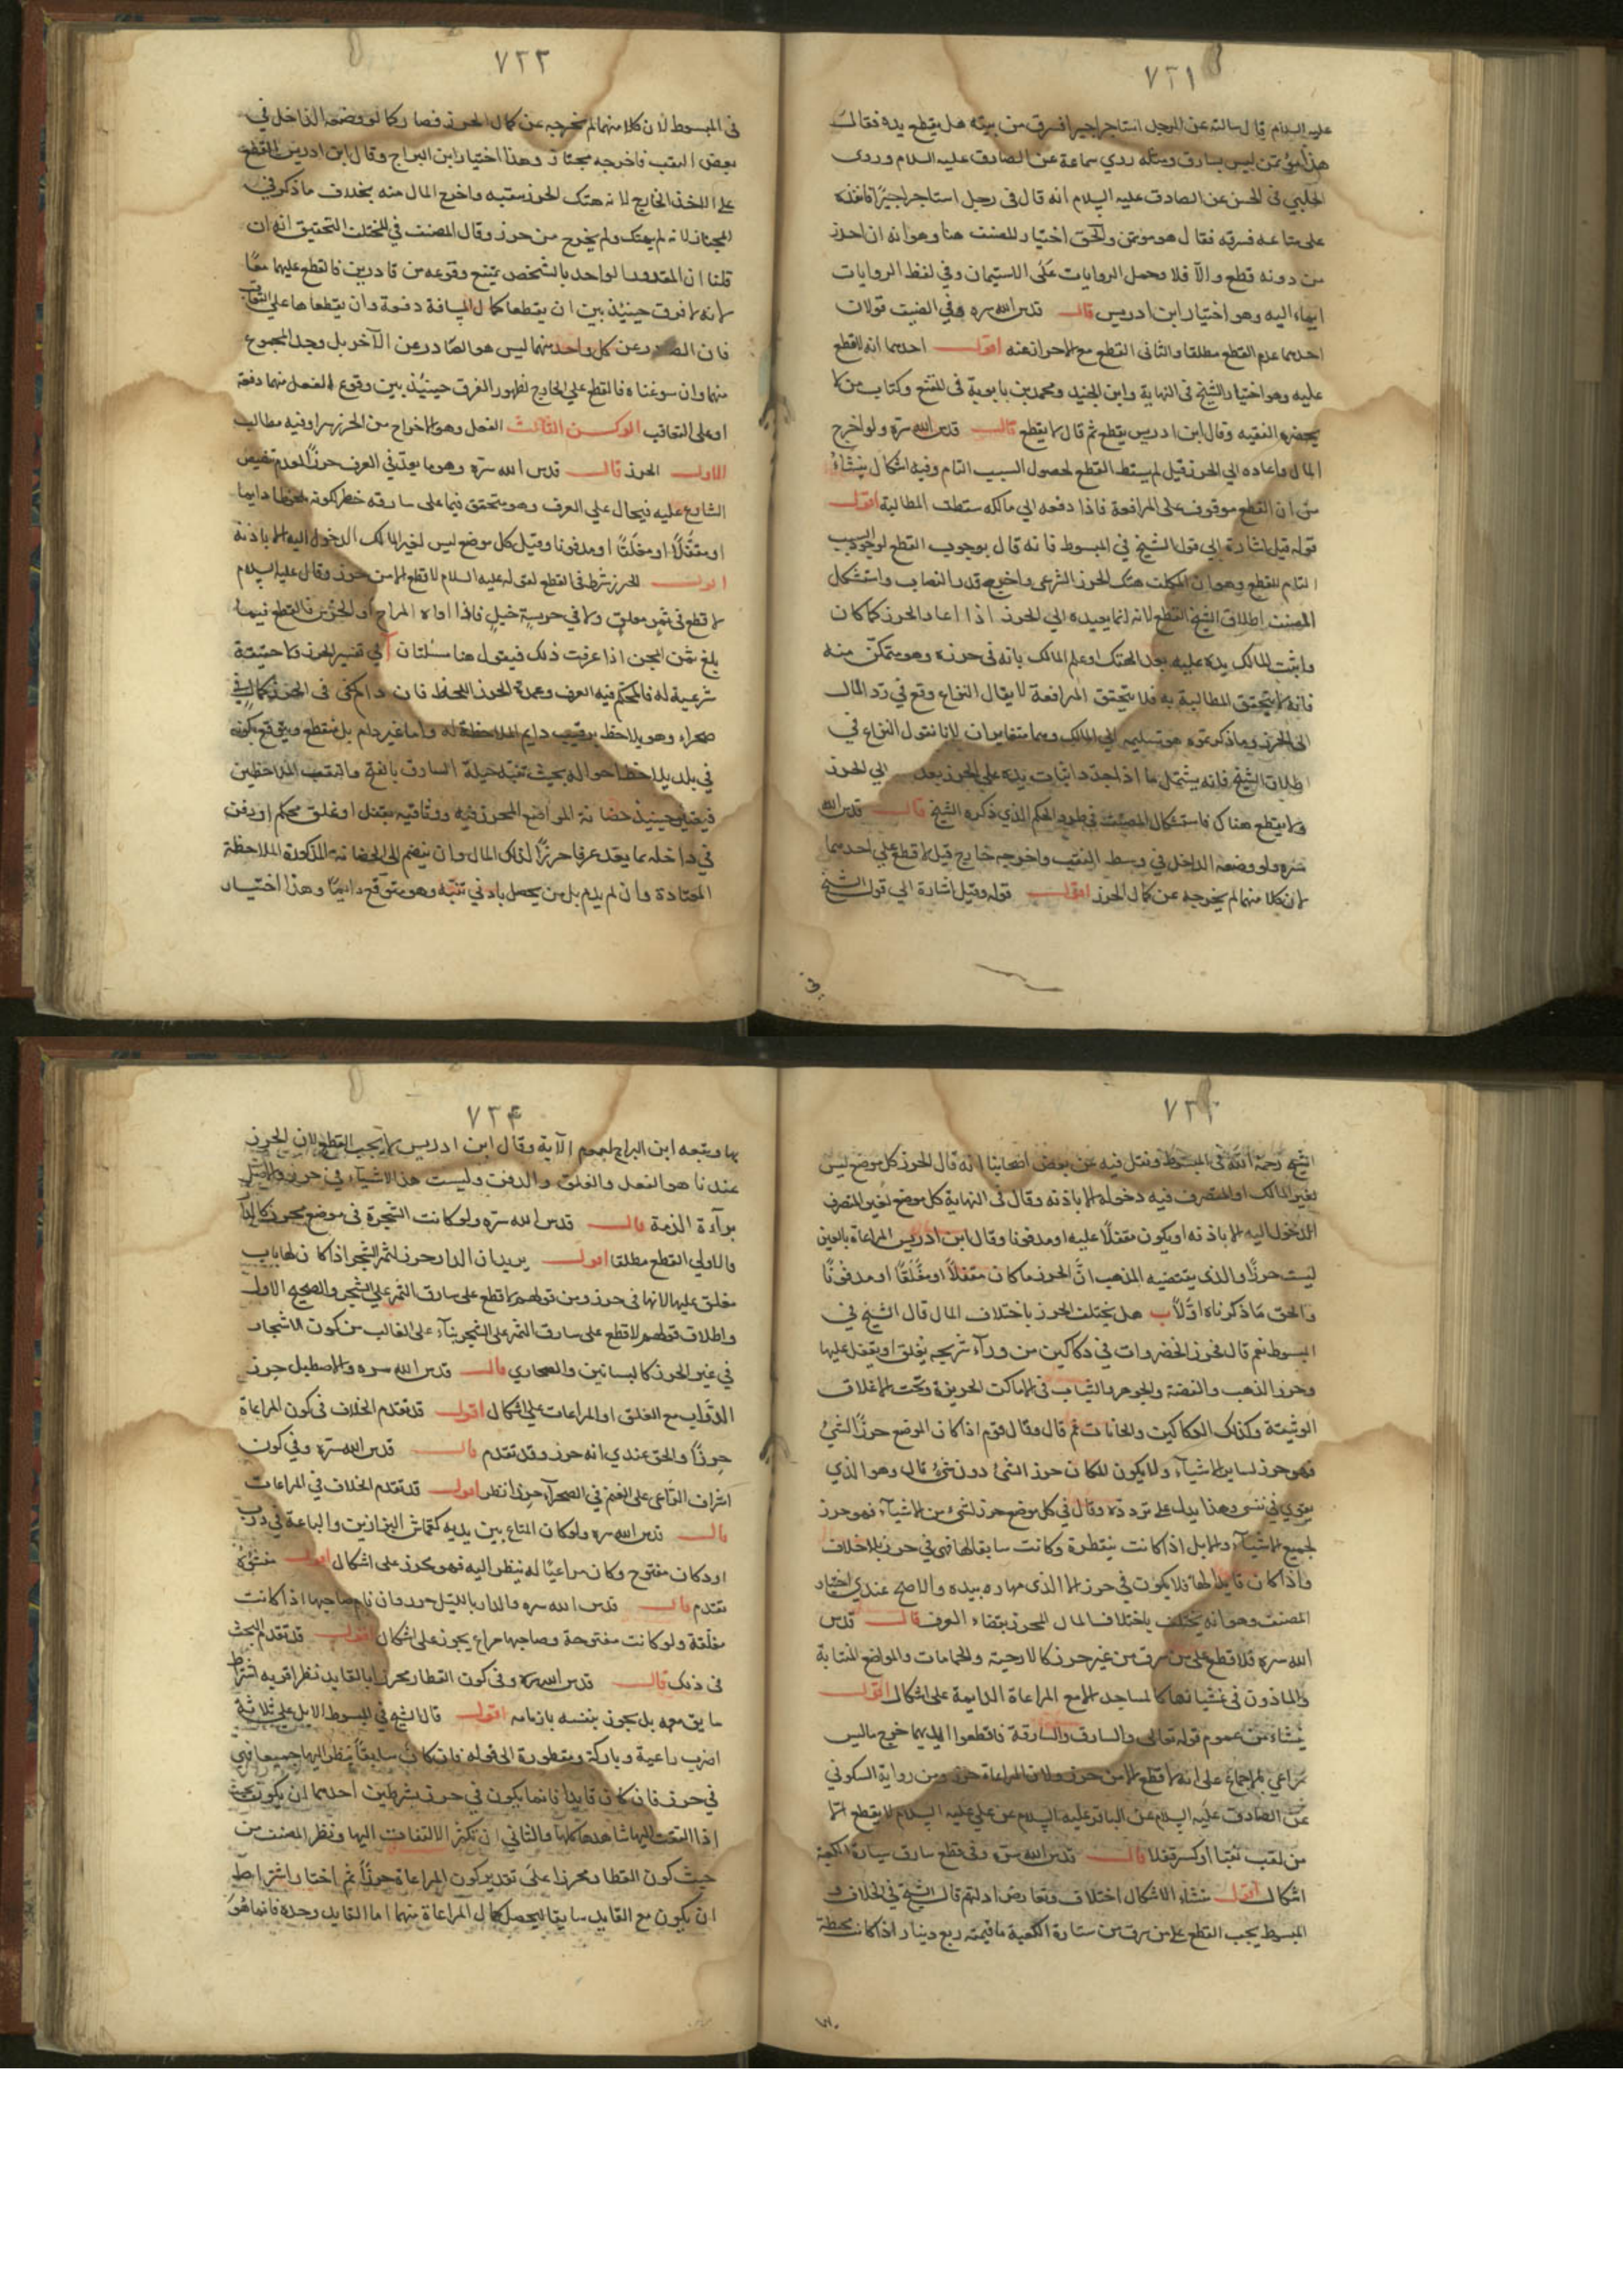 ٧٢١
عليه السلام قال سالته عن الرجل استاجر اجيرا فسرق من بيته هل يقطع يده فقال
هذا مؤتمن ليس بسارق ومثله روي سماعة عن الصادق عليه السلام وروى
الحلبي في الحسن عن الصادق عليه السلام انه قال في رجل استاجر اجيرًا فاقعده
على متاعه فسرقه فقال هو مؤتمن والحق اختيار المصنف هنا وهو انه ان احرز
من دونه قطع والّا فلا وحمل الروايات على الاستيمان وفي لفظ الروايات
ايماء اليه وهو اختيار ابن ادريس قال قدس الله سره وفي الضيف قولان
احدهما عدم القطع مطلقا والثانى القطع مع الاحراز عنه اقول احدهما انه لا قطع
عليه وهو اختيار الشيخ في النهاية وابن الجنيد ومحمد بن بابويه في المقنع وكتاب من لا
يحضره الفقيه وقال ابن ادريس يقطع ثم قال لا يقطع قال قدس الله سره ولو اخرج
المال واعاده الي الحرز قيل لم يسقط القطع لحصول السبب التام وفيه اشكال ينشاء
من ان القطع موقوف على المرافعة فاذا دفعه الي مالكه سقطت المطالبة اقول
قوله قيل اشارة الي قول الشيخ في المبسوط فانه قال بوجوب القطع لوجود السبب
التام للقطع وهو ان المكلف هتك الحرز الشرعى واخرج قدر النصاب واستشكل
المصنف اطلاق الشيخ القطع لانه انما يعيده الي الحرز اذا اعاد الحرز كما كان
واثبت المالك يده عليه بعد الهتك او علم المالك بانه في حرزه وهو متمكن منه
فانه لا يتحقق المطالبة به فلا يتحقق المرافعة لا يقال النزاع وقع في رد المال
الى الحرز وما ذكرتموه هو تسليمه الي المالك وهما متغايران لانا نقول النزاع في
اطلاق الشيخ فانه يشتمل ما اذا جدد اثبات يده على الحرز بعد الي الحرز
ولا يقطع هناك فاستشكال المصنف في طرد الحكم الذي ذكره الشيخ قال قدس الله
سره ولو وضعه الداخل في وسط النقب واخرجه خارج قيل لا قطع على احدهما
لان كلا منهما لم يخرجه عن كمال الحرز اقول قوله وقيل اشارة الي قول الشيخ
في
٧٢٢
في المبسوط لان كلا منهما لم يخرجه عن كمال الحرز فصار كما لو وضعه الداخل في
بعض النقب فاخرجه مجتاز وهذا اختيار ابن البراج وقال ابن ادريس القطع
على الاخذ الخارج لانه هتك الحرز بنقبه واخرج المال منه بخلاف ما ذكر في
المجتاز لانه لم يهتك ولم يخرج من حرز وقال المصنف في المختلف التحقيق انه ان
قلنا ان المقدور الواحد بالشخص يمتنع وقوعه من قادرين فالقطع عليهما معًا
لانه لا فرق حينئذ بين ان يقطعا كمال المسافة دفعة وان يقطعاها على التعاقب
فان الصادر عن كل واحد منهما ليس هو الصادر عن الآخر بل وجد المجموع
منهما وان سوغناه فالقطع على الخارج لظهور الفرق حينئذ بين وقوع الفعل منهما دفعة
او على التعاقب الركن الثالث الفعل وهو الاخراج من الحرز سرا وفيه مطالب
الاول الحرز قال قدس الله سره وهو ما يعدّ في العرف حرزًا لعدم تنصيص
الشارع عليه فيحال علي العرف وهو متحقق فيما على سارقه خطر لكونه ملحوظا دايما
او مقفلًا او مغلقًا او مدفونا وقيل كل موضع ليس لغير المالك الدخول اليه الا باذنه
اقول الحرز شرط في القطع لقوله عليه السلام لا قطع الا من حرز وقال عليه السلام
لا قطع في ثمر معلق ولا في حريسة خيل فاذا اواه المراح او الجرين فالقطع فيما
بلغ ثمن المجن اذا عرفت ذلك فيقول هنا مسئلتان آ في تفسير الحرز لا حقيقة
شرعية له فالمحكّم فيه العرف وعمدة الحرز اللحظ فان دام كفى في الحرز كمال في
صحراء وهو يلاحظ برقيب دايم الملاحظة له واما غير دايم بل منقطع ويتوقع كونه
في بلد يلاحظ احواله بحيث تنبّه حيلة السارق بالفتح والنقب الملاحظين
فيعتبر حينئذ حضانة المواضع المحرز فيه ووثاقته بقفل او غلق محكم او دفن
في داخله بما يعد عرفا حرزًا لذلك المال وان ينضم الى الحضانة المذكورة الملاحظة
المعتادة وان لم يدم بل من يحصل بادني تنبّه وهو متوقع دايمًا وهذا اختيار
٧٢٣
الشيخ رحمه الله في المبسوط ونقل فيه عن بعض اصحابنا انه قال الحرز كل موضع ليس
لغير المالك او المتصرف فيه دخوله الا باذنه وقال في النهاية كل موضع لغير المتصرف
الدخول اليه الا باذنه او يكون مقفلا عليه او مدفونا وقال ابن ادريس المراعاة بالعين
ليست حرزًا والذي يقتضيه المذهب انّ الحرز ما كان مقفلًا او مغلقًا او مدفونًا
والحق ما ذكرناه اوّلًا ب هل يختلف الحرز باختلاف المال قال الشيخ في
المبسوط نعم قال فحرز الخضروات في دكاكين من وراء شريجه يغلق او يقفل عليها
وحرز الذهب والفضة والجوهر والثياب في الاماكن الحريزة وتحت الاغلاق
الوثيقة وكذلك الدكاكين والخانات ثم قال وقال قوم اذا كان الموضع حرزًا لشئ
فهو حرز لساير الاشياء ولا يكون المكان حرز الشئ دون شئ قال وهو الذي
يقوي في نفسي وهذا يدل على تردده وقال في كل موضع حرز لشيء من الاشياء فهو حرز
لجميع الاشياء والابل اذا كانت مقطرة وكانت سايقا لها فهي في حرز بلا خلاف
واذا كان قايدا لها فلا يكون في حرز الا الذى مهاره بيده والاصح عندي اختيار
المصنف وهو انه يختلف باختلاف المال المحرز بقضاء العرف قال قدس
الله سره فلا قطع على من سرق من غير حرز كالارحية والحمامات والمواضع المنتابة
والماذون في غشيانها كالمساجد الا مع المراعاة الدايمة على اشكال اقول
ينشاء من عموم قوله تعالى والسارق والسارقة فاقطعوا ايديهما خرج ما ليس
مراعي بالاجماع على انه لا قطع الا من حرز ولان المراعاة حرز ومن رواية السكوني
عن الصادق عليه السلام عن الباقر عليه السلام عن علي عليه السلام لا يقطع الا
من نقب نقبا او كسر قفلا قال قدس الله سره وفي قطع سارق ستارة الكعبة
اشكال اقول منشاء الاشكال اختلاف وتعارض ادلتهم قال الشيخ في الخلاف و
المبسوط يجب القطع على من سرق من ستارة الكعبة ما قيمته ربع دينار اذا كانت مخيطة
٧٢٤
بها وتبعه ابن البراج لعموم الآية وقال ابن ادريس لا يجب القطع لان الحرز
عندنا هو القفل والغلق والدفن وليست هذه الاشياء في حرز والاصل
براءة الذمة قال قدس الله سره ولو كانت الشجرة في موضع محرز كالدار
فالاولي القطع مطلقا اقول يريد ان الدار حرز لثمر الشجر اذا كان لها باب
مغلق عليها لانها في حرز ومن قولهم لا قطع على سارق الثمر على الشجر والصحيح الاول
واطلاق قولهم لا قطع على سارق الثمر على الشجر بناء على الغالب من كون الاشجار
في غير الحرز كالبساتين والصحاري قال قدس الله سره والاصطبل حرز
الدواب مع الغلق او المراعات علي اشكال اقول قد تقدم الخلاف في كون المراعاة
حرزًا والحق عندي انه حرز وقد تقدم قال قدس الله سره وفي كون
اشراف الراعي على الغنم في الصحراء حرزا نظر اقول قد تقدم الخلاف في المراعات
قال قدس الله سره ولو كان المتاع بين يديه كقماش البزازين والباعة في درب
او دكان مفتوح وكان مراعيًا له ينظر اليه فهو محرز على اشكال اقول منشؤه
تقدم قال قدس الله سره والدار بالليل حرز وان نام صاحبها اذا كانت
مغلقة ولو كانت مفتوحة وصاحبها مراع يحرز على اشكال اقول قد تقدم البحث
في ذلك قال قدس الله سره وفي كون القطار محرزا بالقايد نظر اقربه اشتراط
سايق معه بل يحرز بنفسه بازمامه اقول قال الشيخ في المبسوط الابل على ثلاثة
اضرب راعية وباركة ومقطورة الى قوله فان كان سايقًا ينظر اليها جميعا فهي
في حرز فان كان قايدا فانما يكون في حرز بشرطين احدهما ان يكون بحيث
اذا التفت اليها شاهدها كلها والثاني ان يكثر الالتفات اليها ونظر المصنف من
حيث كون القطار محرزا على تقدير كون المراعاة حرزًا ثم اختار اشتراط
ان يكون مع القايد سايقا ليحصل كمال المراعاة منهما اما القايد وحده فانما هو